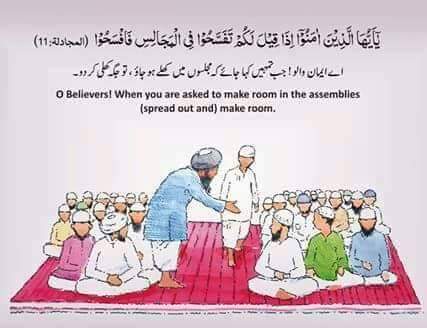 يٰٓاَيُّهَا الَّذِيْنَ اٰمَنُوْٓا اِذَا قِيْلَ لَكُمْ تَفَسَّحُوْا فِي الْمَجَالِسِ فَافْسَحُوْا (المجادلة:11)
اے ایمان والو! جب تمہیں کہا جائے کہ مجلسوں میں کھلے ہو جاؤ، تو جگہ کھلی کر دو۔
O Believers! When you are asked to make room in the assemblies
(spread out and) make room.